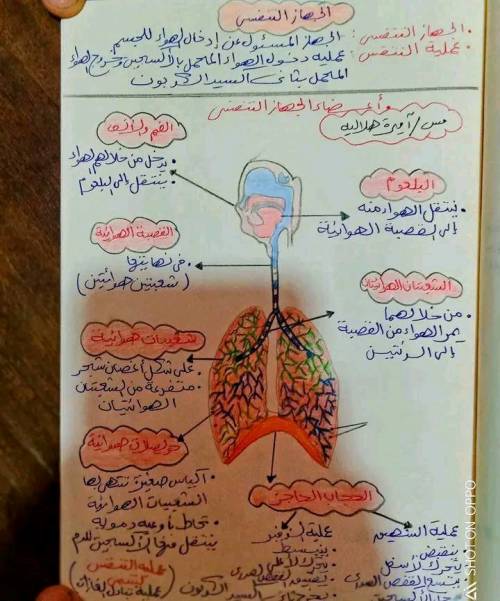 الجهاز التنفسي
• الجهاز التنفسى : الجهاز المسئول عن إدخال الهواء للجسم
• عملية التنفس : عملية دخول الهواء المحمل بالأكسجين وخروج الهواء
المحمل بثانى أكسيد الكربون
وأعضاء الجهاز التنفسى
مس/أميرة هلاليه
الفم والأنف
• يدخل من خلالهم الهواء
• ينتقل إلى البلعوم
البلعوم
• ينتقل الهواء منه
إلى القصبة الهوائية
القصبة الهوائية
• فى نهايتها
(شعبتين هوائيتين)
الشعبتان الهوائيتان
• من خلالهما
يمر الهواء من القصبة
إلى الرئتين
شعيبات هوائية
• على شكل أغصان شجر
• متفرعة من الشعبتان
الهوائيتان
حويصلات هوائية
• أكياس صغيرة تنتهى بها
الشعيبات الهوائية
• تحاط بأوعيه دمويه
ينتقل منها الأكسجين للدم
عملية التنفس
تسمى
(عملية تبادل الغازات)
الحجاب الحاجز
عملية الشهيق
ينقبض
يتحرك لأسفل
يتسع القفص الصدرى
الأكسجين
عملية الزفير
• ينبسط
• يتحرك لأعلى
• يضيق القفص الصدرى
ثانى أكسيد الكربون
SHOT ON OPPO